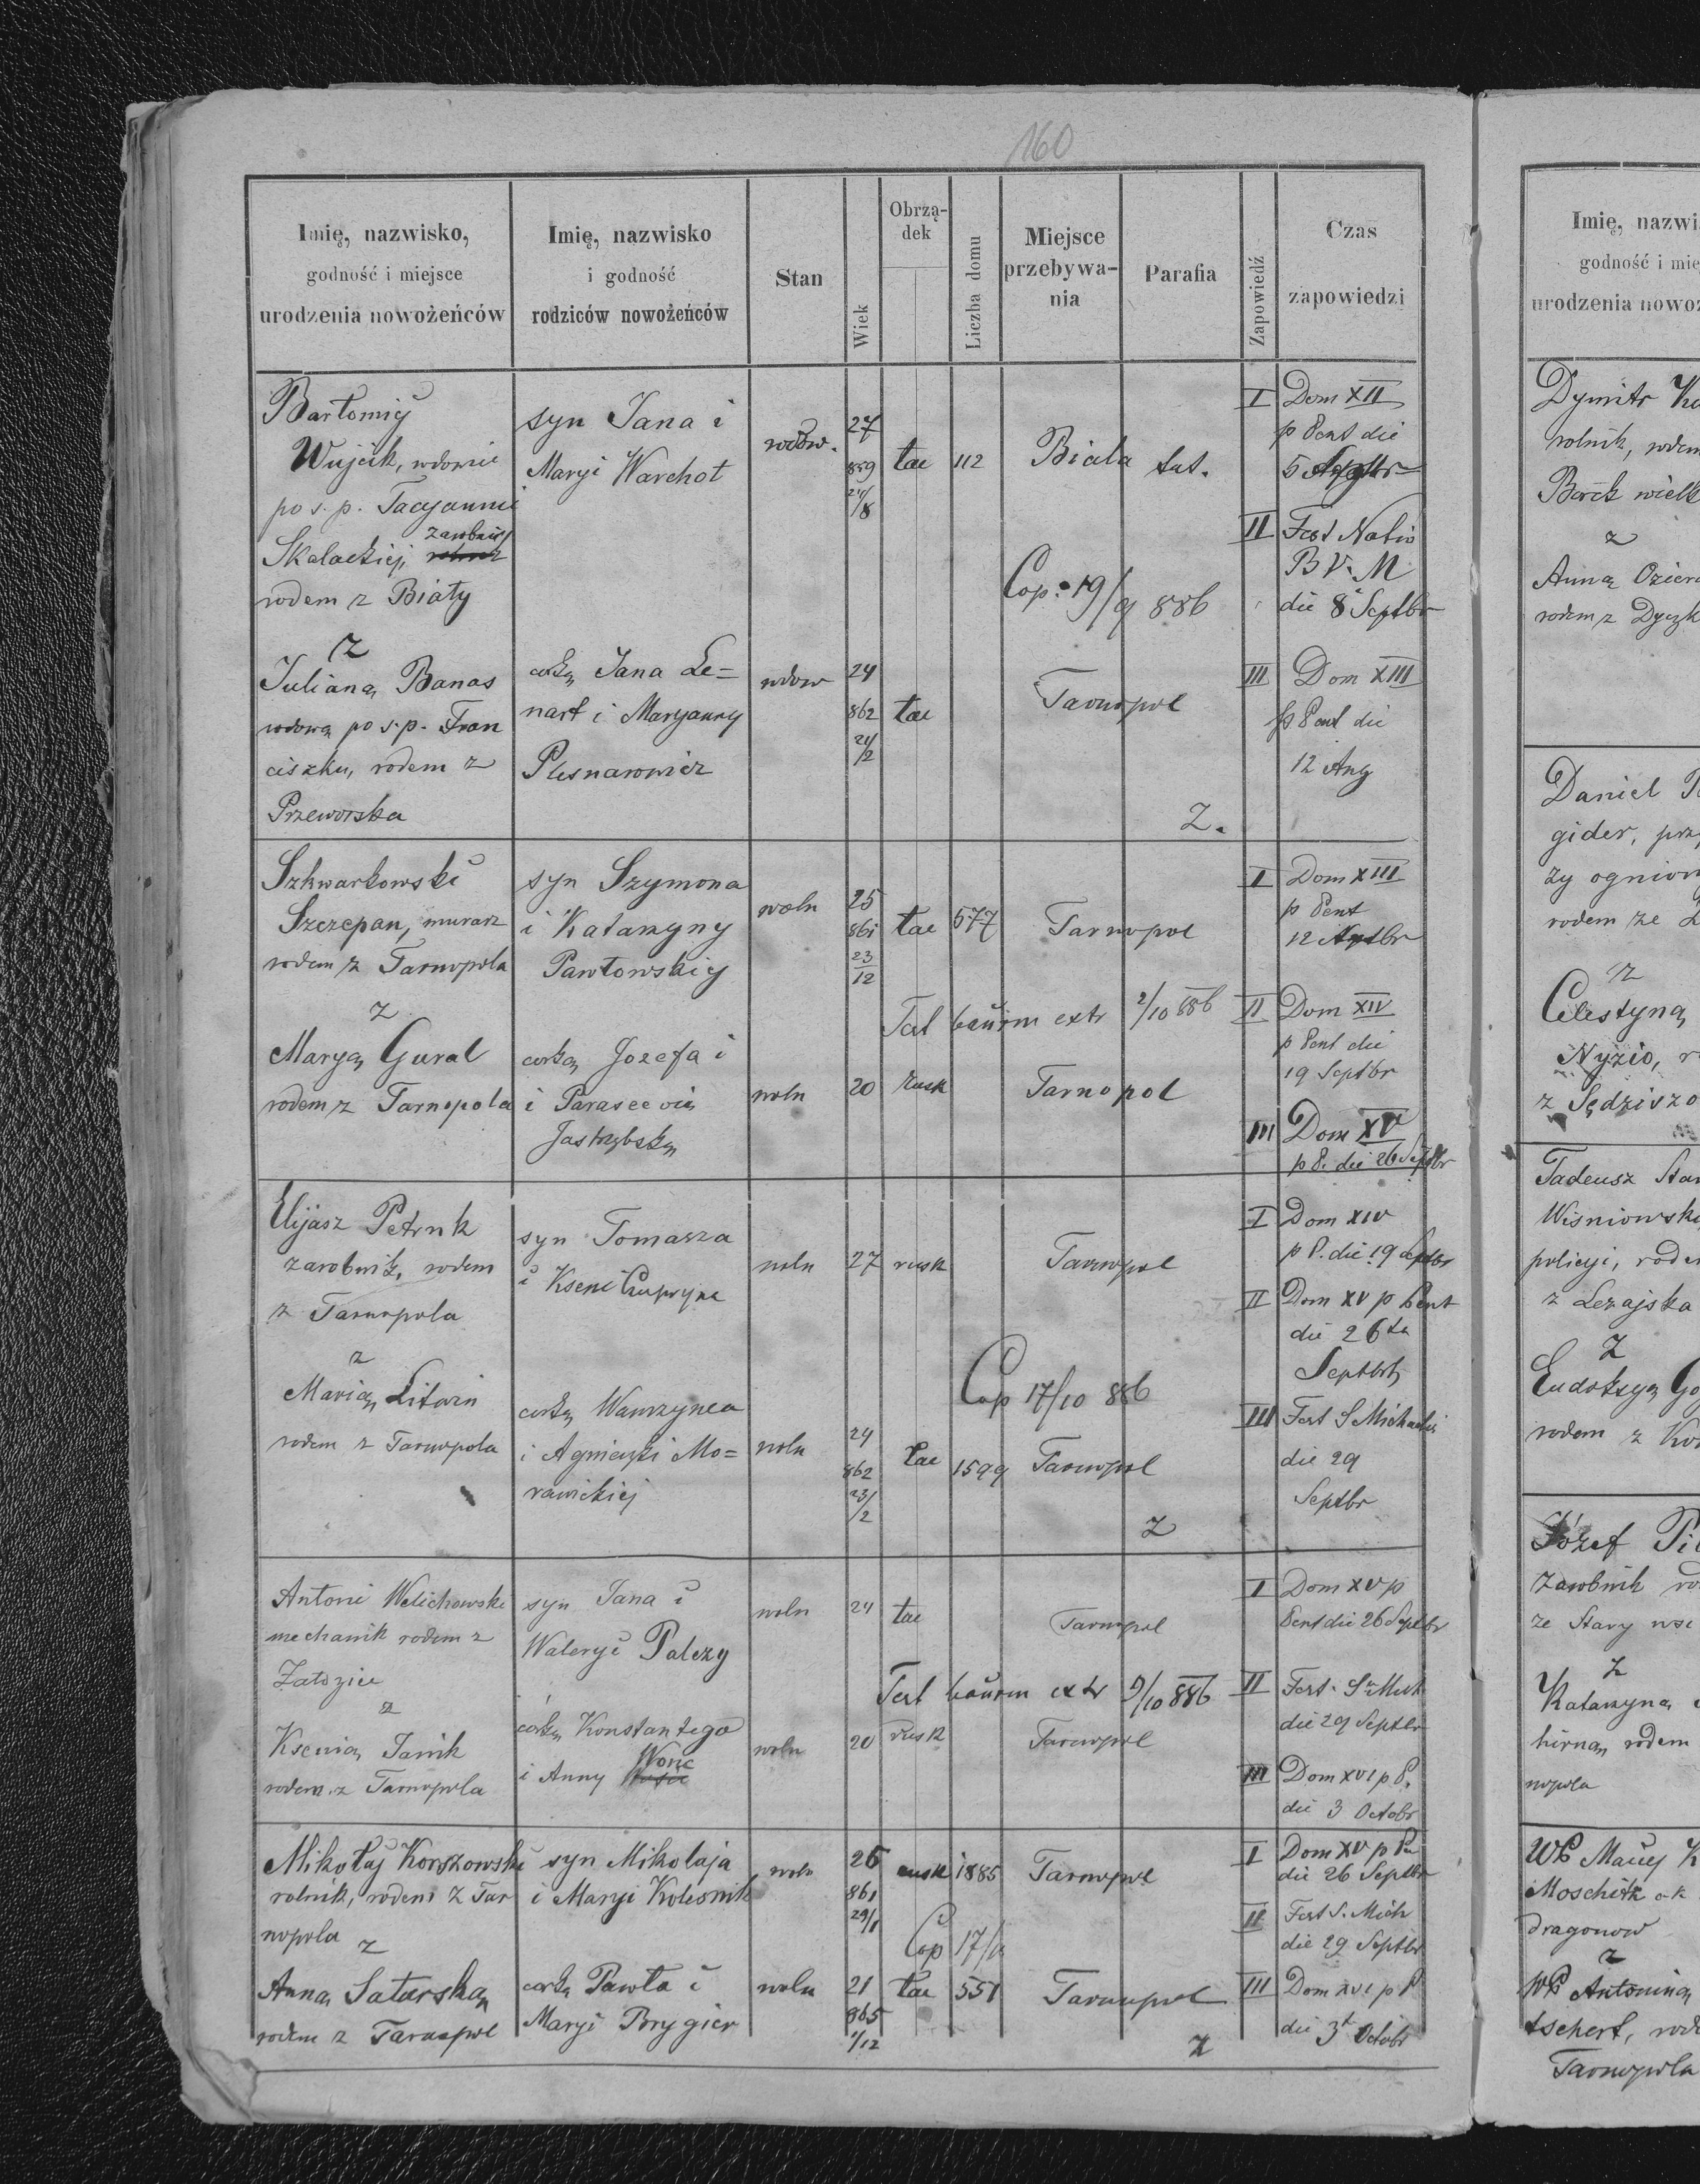 160
Imię, nazwisko,
godność i miejsce
urodzenia nowożeńców
Imię, nazwisko
i godność
rodziców nowożeńców
Stan
Wiek
Obrzą-
dek
Liczba domu
Miejsce
przebywa-
nia
Parafia
Zapowiedź
Czas
zapowiedzi
Bartomiéj
Wujcik, wdowiec
po s. p. Tacyannie
Skalackiej,
rodem z Biały
syn Jana i
Maryi Warchoł
wdow.
27
859
24/8
lac
112
Biała
tut.
I Dom XII
p Pent die
5
II Fest Nativ
B V. M
die 8 Septbr
Cop. 19/9 886
z
Julianą Banas
wdową po s. p. Fran
ciszku, rodem z
Przeworska
córką Jana Le=
nart i Maryanny
Plesnarowicz
wdow
24
862
21/2
lac
Tarnopol
III Dom XIII
p Pent die
12 Aug
Z.
Szkwarkowski
Szczepan, murarz
rodem z Tarnopola
syn Szymona
i Katarzyny
Pawłowskiej
woln
25
861
23/12
lac
577
Tarnopol
I Dom XIII
p Pent
12
Test bannm extr 2/10 886
II Dom XIV
p Pent die
19 Septbr
z
Maryą Gural
rodem z Tarnopola
corką Jozefa i
i Parascevii
Jastrzębską
woln
20
rusk
Tarnopol
III Dom XV
p P. die 26 Septbr
Elijasz Petruk
zarobnik, rodem
z Tarnopola
syn Tomasza
i Kseni Czupryna
woln
27
rusk
Tarnopol
I Dom XIV
p P. die 19 Septbr
II Dom XV p Pent
die 26ta
Septbris
z
Marią Litwin
rodem z Tarnopola
corką Wawrzynca
i Agnieszki Mo=
rawickiej
woln
24
862
23/2
lac
1599
Tarnopol
Cop 17/10 886
III Fest S Michaelis
die 29
Septbr
z
Antoni Welichowski
mechanik rodem z
Załozic
syn Jana i
Waleryi Palczy
woln
24
lac
Tarnopol
I Dom XV p
Pent die 26 Septbr
Test bannm extr 9/10 886
II Fest. S Mich
die 29 Septbr
z
Ksenią Janik
rodem z Tarnopola
córką Konstantego
i Anny Wonc
woln
20
rusk
Tarnopol
III Dom XVI p P.
die 3 Octobr
Mikołaj Korszowski
rolnik, rodem z Tar
nopola
syn Mikołaja
i Maryi Kolesnik
woln
25
861
29/1
rusk
1885
Tarnopol
I Dom XV p Pn
die 26 Septbr
II Fest S. Mich
die 29 Septbr
Cop 17/
z
Anną Satarską
rodem z Tarnopol
corką Pawła i
Maryi Brygier
woln
21
865
1/12
lac
551
Tarnopol
III Dom XVI p P
die 3t Octobr
z
Imię, nazwi
godność i mie
urodzenia nowoż
Dymitr
rolnik, rodem
Borek wielk
z
Anną Ozier
rodem z Dyczk
Daniel
gider, prz
zy ogniow
rodem ze
z
Celestyną
Nyzio, r
z Sędziszo
Tadeusz Stan
Wisniowski
policyi, rode
z Lezajska
z
Eudoksyą Go
rodem z Ko
Józef Pi
zarobnik ro
ze Stary wsi
z
Katarzyną
hirną, rodem
nopola
WP Maciej K
Moschitz
dragonow
z
WP Antoniną
tschert, rod
Tarnopola